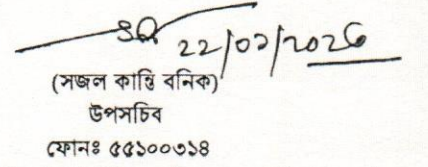 22/02/2026
(সজল কান্তি বনিক)
উপসচিব
ফোনঃ ৫৫১০০৩১৪